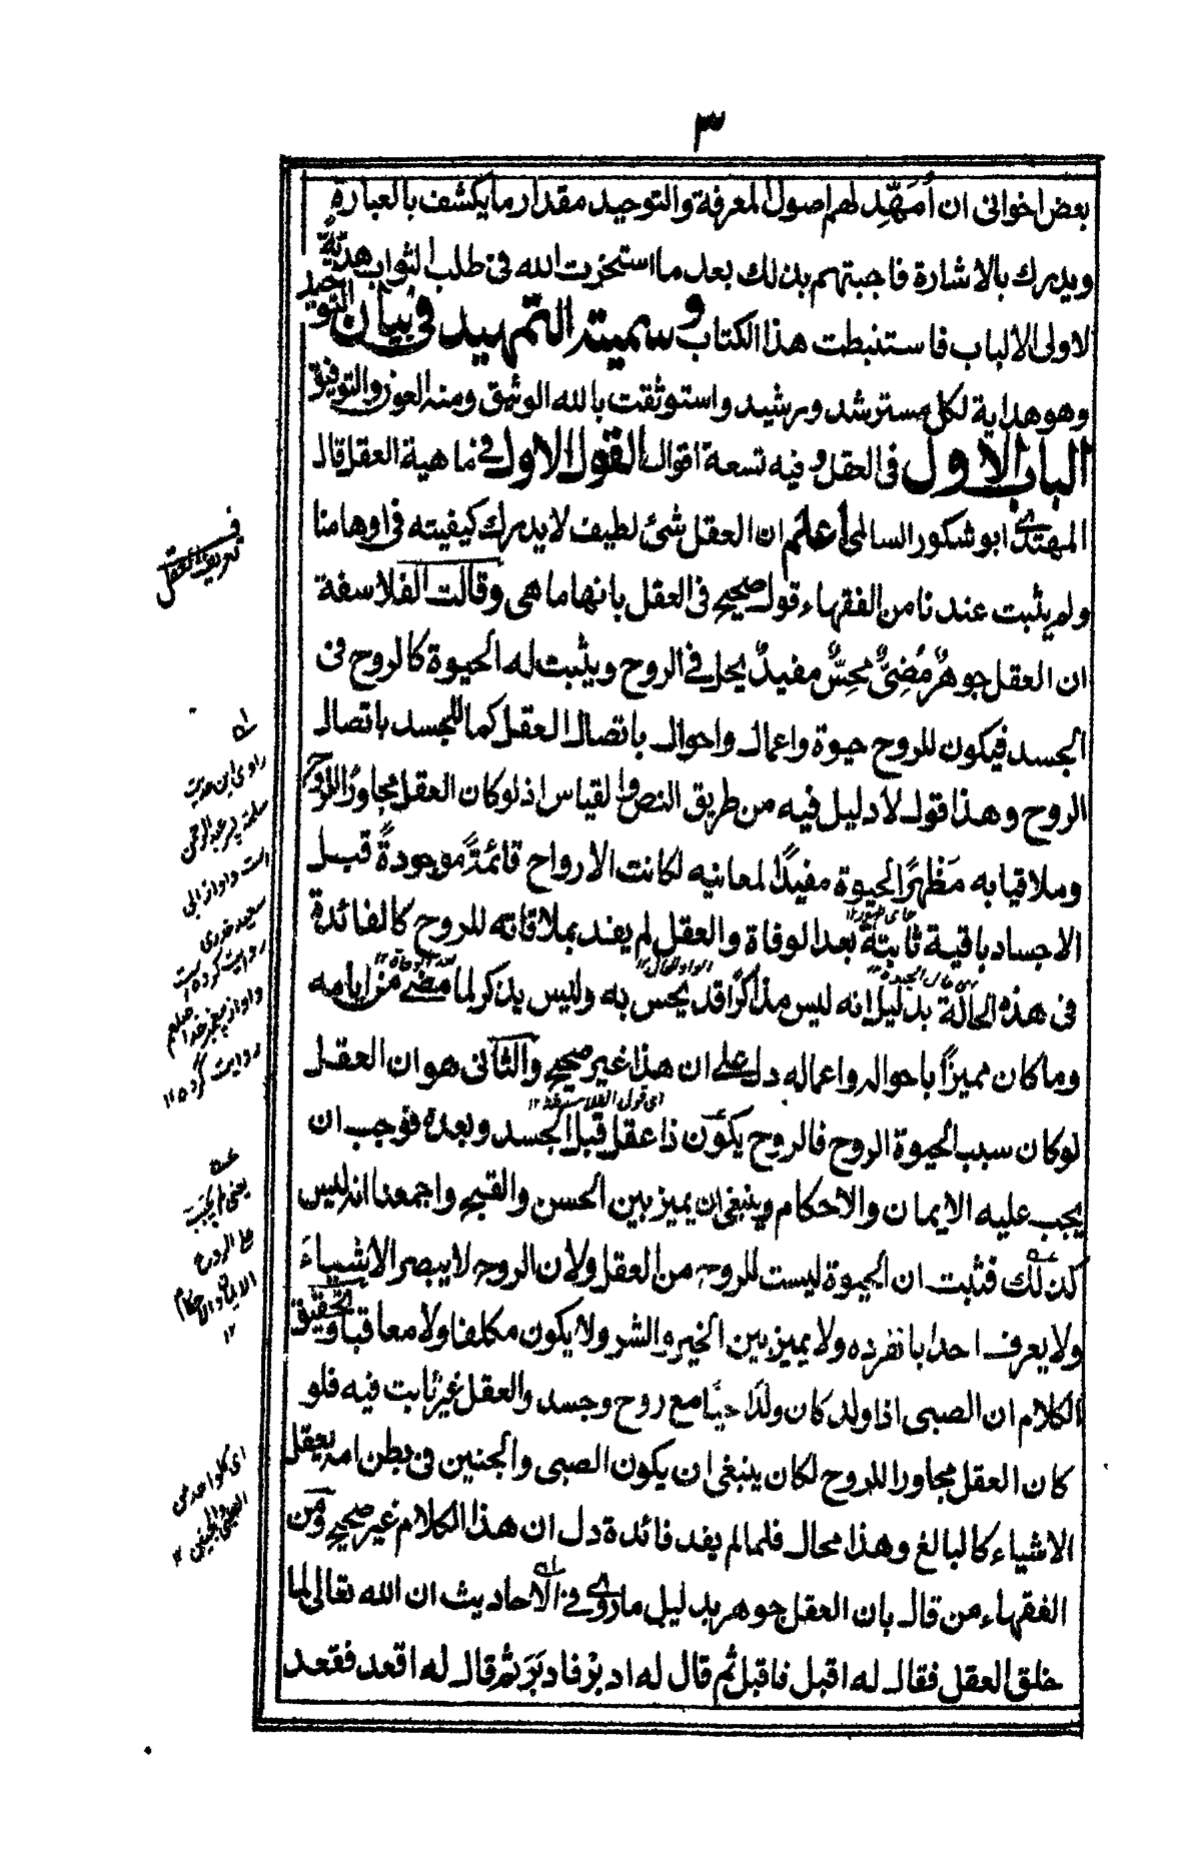 ٣
بعض اخوانى ان اُمَهِّد لهم اصول المعرفة والتوحيد مقدار ما يكشف بالعبارة
ويدرك بالاشارة فاجبتهم بذلك بعد ما استخرت الله فى طلب الثواب هدية
لاولى الالباب فاستنبطت هذا الكتاب و سميته التمهيد فى بيان التوحيد
وهو هداية لكل مسترشد ورشيد واستوثقت بالله الوثيق ومنه العون والتوفيق
الباب الاول فى العقل وفيه تسعة اقوال القول الاول فى ماهية العقل قال
المهتدى ابو شكور السالمى اعلم ان العقل شئ لطيف لا يدرك كيفيته فى اوهامنا
ولم يثبت عندنا من الفقهاء قول صحيح فى العقل بانها ما هى وقالت الفلاسفة
ان العقل جوهرٌ مُضِئٌ محِسٌّ مفيدٌ يحل فى الروح ويثبت له الحيوة كالروح فى
الجسد فيكون للروح حيوة واعمال واحوال باتصال العقل كما للجسد باتصال
الروح وهذا قول لا دليل فيه من طريق النص والقياس اذ لو كان العقل مجاورًا للروح
وملاقيا به مَظهرًا لحيوة مفيدًا لمعانيه لكانت الارواح قائمةً موجودةً قبل
الاجساد باقية ثابتة بعد الوفاة والعقل لم يفد بملاقاته للروح كالفائدة
فى هذه الحالة بدليل انه ليس مذاكرًا قد يحس به وليس يذكر لما مضى من ايامه
وما كان مميزًا باحواله واعماله دل على ان هذا غير صحيح والثانى هو ان العقل
اى قول الفلاسفة ١٢
لو كان سبب الحيوة الروح فالروح يكون ذا عقل قبل الجسد وبعده فوجب ان
يجب عليه الايمان والاحكام وينبغى ان يميز بين الحسن والقبح واجمعنا انه ليس
كذلك فثبت ان الحيوة ليست للروح من العقل ولان الروح لا يبصر الاشياء
ولا يعرف احدا بانفرده ولا يميز بين الخير والشر ولا يكون مكلفا ولا معاقبا وتحقيق
الكلام ان الصبى اذا ولد كان ولدًا حيًا مع روح وجسد والعقل غير ثابت فيه فلو
كان العقل مجاورا للروح لكان ينبغى ان يكون الصبى والجنين فى بطن امه يعقل
الاشياء كالبالغ وهذا محال فلما لم يفد فائدة دل ان هذا الكلام غير صحيح ومن
الفقهاء من قال بان العقل جوهر بدليل ما روى فى الاحاديث ان الله تعالى لما
خلق العقل فقال له اقبل فاقبل ثم قال له ادبر فادبَرَ ثم قال له اقعد فقعد
ف
تعريف العقل
راوى اين حديث
سلمة پسر عبدالرحمن
است و او از ابى
سعيد خدرى
روايت كرده است
و او از پيغمبر خدا صلعم
روايت كرده ١٢
يعنى لم يجب
على الروح
الايمان والاحكام
١٢
اى كلواحد من
الصبى والجنين ١٢